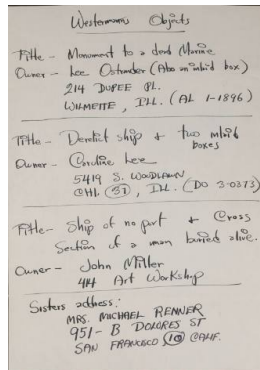 Westermanns Objects
Title - Monument to a dead Marine
Owner - Lee Ostander (Also an inlaid box)
214 DUPEE PL.
WILMETTE, ILL. (AL 1-1896)
Title - Derelict ship & two inlaid
boxes
Owner - Caroline Lee
5419 S. WOODLAWN
CHI. (37), ILL. (DO 3-0373)
Title - Ship of no port & Cross
Section of a man buried alive.
Owner - John Miller
414 Art Workshop
Sisters address:
MRS. MICHAEL RENNER
951-B DOLORES ST
SAN FRANCISCO (10) CALIF.